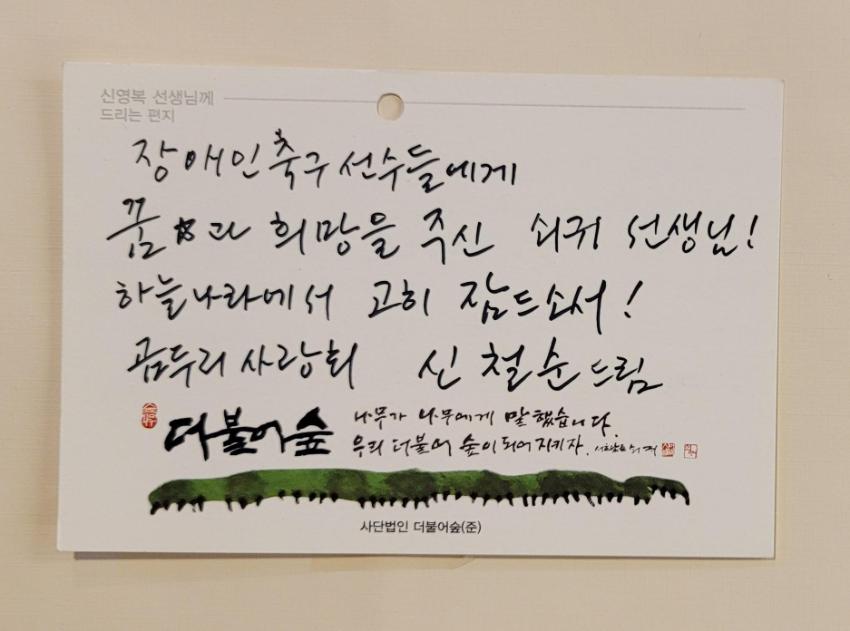 신영복 선생님께
드리는 편지
장애인축구선수들에게
꿈과 희망을 주신 쇠귀 선생님!
하늘나라에서 고히 잠드소서!
곰두리 사랑회 신철순 드림
더불어숲
나무가 나무에게 말했습니다.
우리 더불어 숲이 되어 지키자.
사단법인 더불어숲(준)